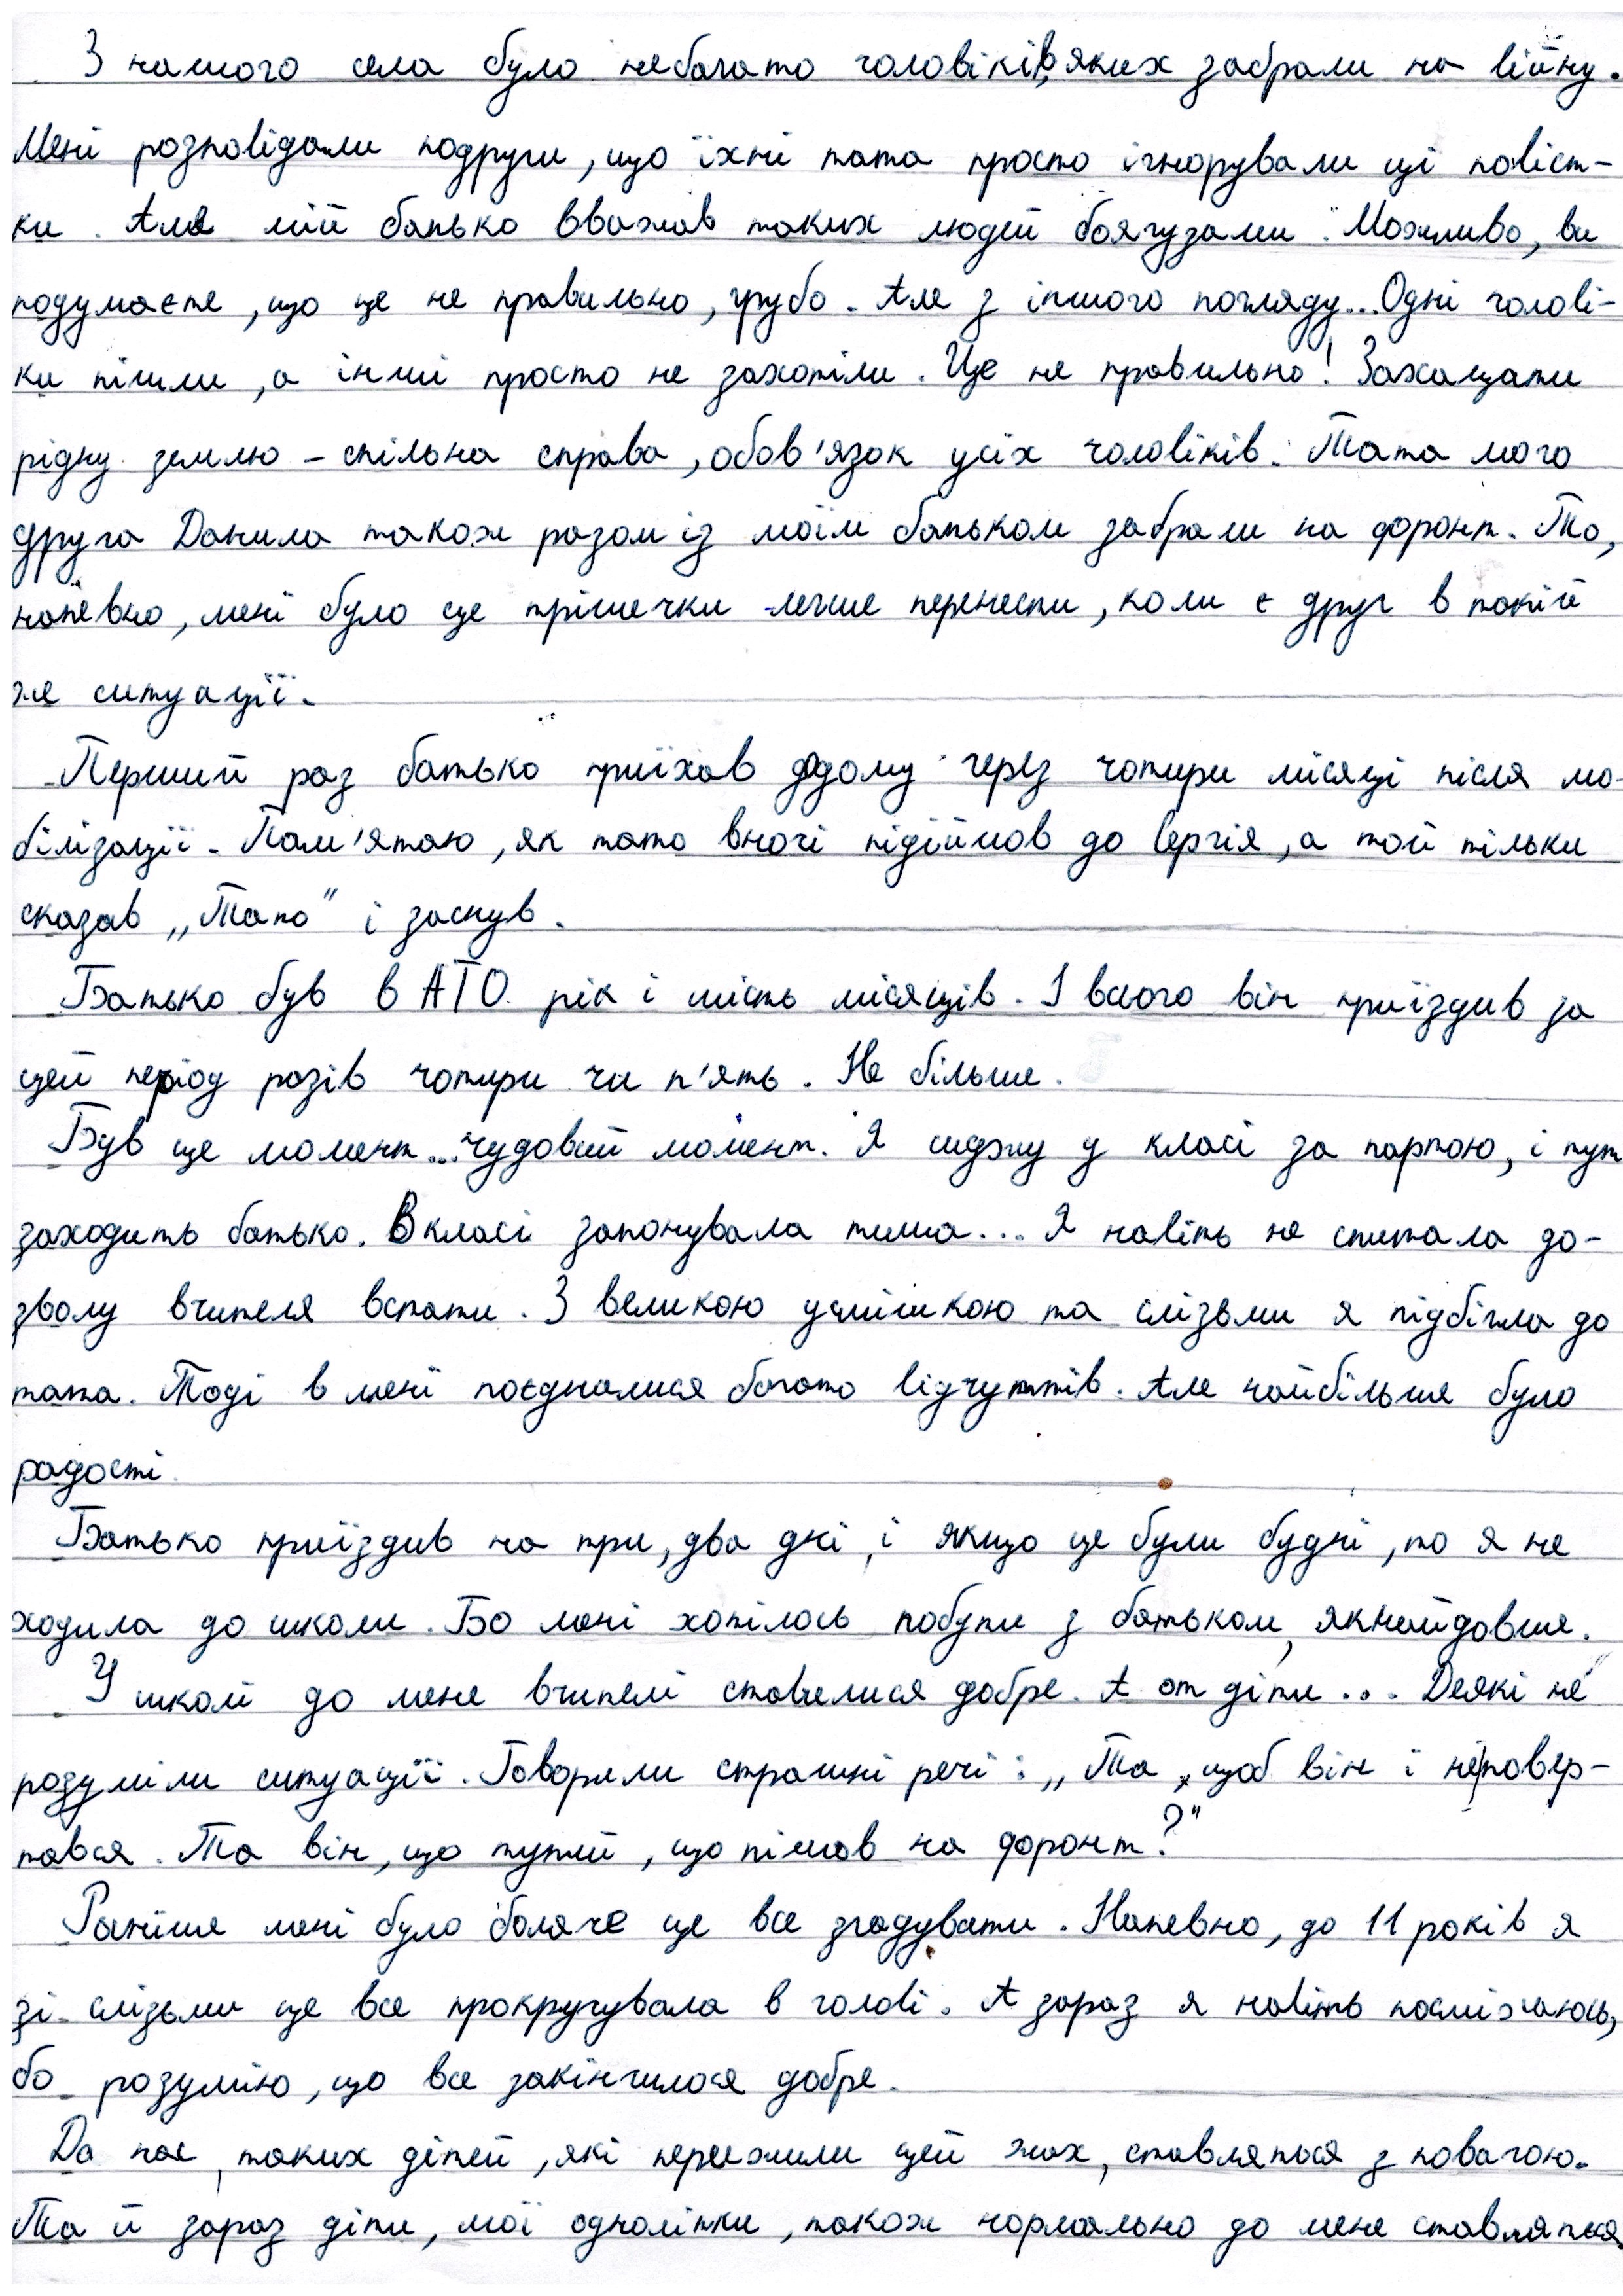 З нашого села було небагато чоловіків, яких забрали на війну.
Мені розповідали подруги, що їхні тата просто ігнорували ці повіст-
ки. Але мій батько вважав таких людей боягузами. Можливо, ви
подумаєте, що це не правильно, грубо. Але з іншого погляду... Одні чолові-
ки пішли, а інші просто не захотіли. Це не правильно! Захищати
рідну землю - спільна справа, обов'язок усіх чоловіків. Тата мого
друга Данила також разом із моїм батьком забрали на фронт. То,
напевно, мені було ще трішечки легше перенести, коли є друг в такій
же ситуації.
Перший раз батько приїхав додому через чотири місяці після мо-
білізації. Пам'ятаю, як тато вночі підійшов до Сергія, а той тільки
сказав „Тато" і заснув.
Батько був в АТО рік і шість місяців. І всього він приїздив за
цей період разів чотири чи п'ять. Не більше.
Був ще момент... чудовий момент. Я сиджу у класі за партою, і тут
заходить батько. В класі запанувала тиша... Я навіть не спитала до-
зволу вчителя встати. З великою усмішкою та слізьми я підбігла до
тата. Тоді в мені поєдналися багато відчуттів. Але найбільше було
радості.
Батько приїздив на три, два дні, і якщо це були будні, то я не
ходила до школи. Бо мені хотілось побути з батьком, якнайдовше.
У школі до мене вчителі ставилися добре. А от діти... Деякі не
розуміли ситуації. Говорили страшні речі: „Та, щоб він і не повер-
тався. Та він, що тупий, що пішов на фронт?"
Раніше мені було боляче це все згадувати. Напевно, до 11 років я
зі слізьми це все прокручувала в голові. А зараз я навіть посміхаюсь,
бо розумію, що все закінчилося добре.
До нас, таких дітей, які пережили цей жах, ставляться з повагою.
Та й зараз діти, мої однолітки, також нормально до мене ставляться.